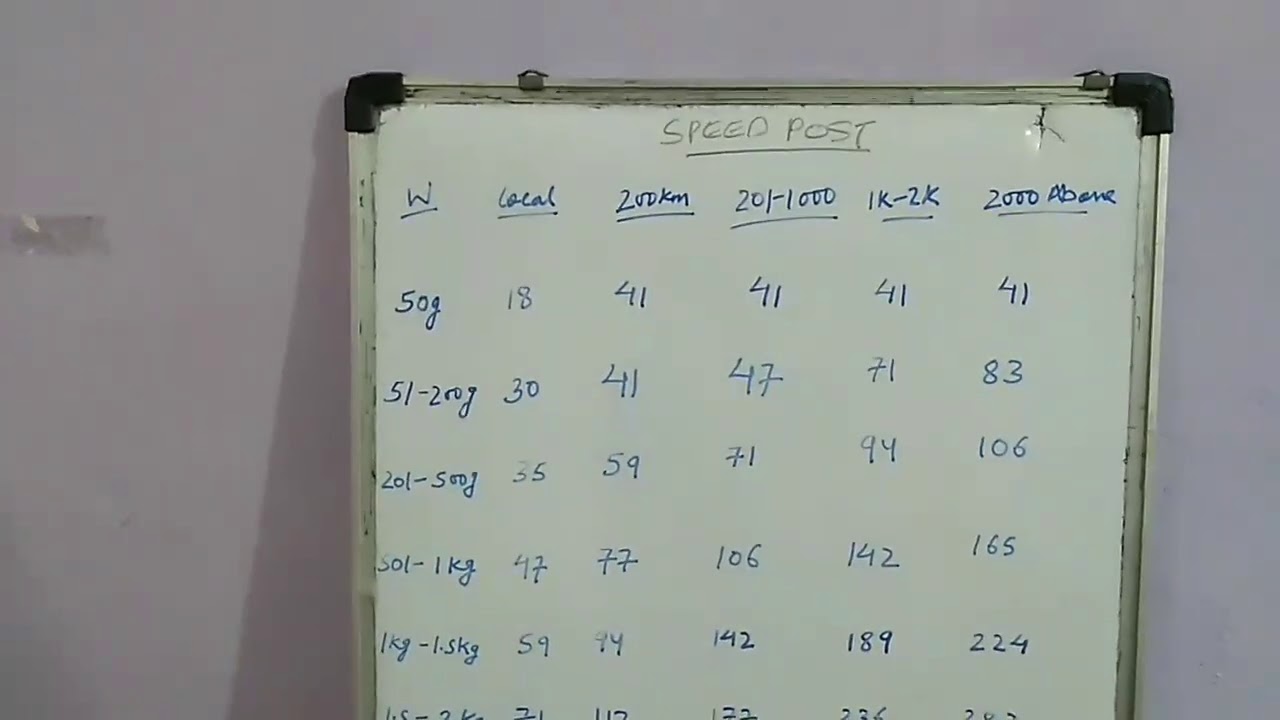 SPEED POST
W Local 200km 201-1000 1K-2K 2000 Above
50g 18 41 41 41 41
51-200g 30 41 47 71 83
201-500g 35 59 71 94 106
501-1kg 47 77 106 142 165
1kg-1.5kg 59 94 142 189 224
1.5-2kg 71 112 177 236